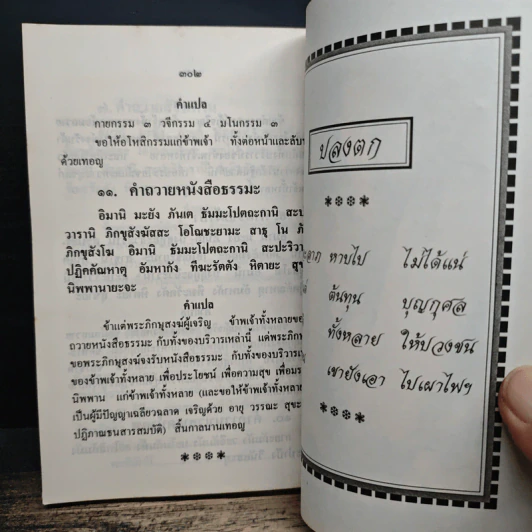 ๓๐๒
คำแปล
กายกรรม ๓ วจีกรรม ๔ มโนกรรม ๓
ขอให้อโหสิกรรมแก่ข้าพเจ้า ทั้งต่อหน้าและลับ
ด้วยเทอญ
๑๑. คำถวายหนังสือธรรมะ
อิมานิ มะยัง ภันเต ธัมมะโปตถะกานิ สะป
วารานิ ภิกขุสังฆัสสะ โอโณชะยามะ สาธุ โน ภั
ภิกขุสังโฆ อิมานิ ธัมมะโปตถะกานิ สะปะริวา
ปฏิคคัณหาตุ อัมหากัง ทีฆะรัตตัง หิตายะ สุข
นิพพานายะจะ
คำแปล
ข้าแต่พระภิกษุสงฆ์ผู้เจริญ ข้าพเจ้าทั้งหลายขอ
ถวายหนังสือธรรมะ กับทั้งของบริวารเหล่านี้ แด่พระภิก
ขอพระภิกษุสงฆ์จงรับหนังสือธรรมะ กับทั้งของบริวาร
ของข้าพเจ้าทั้งหลาย เพื่อประโยชน์ เพื่อความสุข เพื่อมร
นิพพาน แก่ข้าพเจ้าทั้งหลาย (และขอให้ข้าพเจ้าทั้งหล
เป็นผู้มีปัญญาเฉลียวฉลาด เจริญด้วย อายุ วรรณะ สุขะ
ปฏิภาณธนสารสมบัติ) สิ้นกาลนานเทอญ
ปลงตก
หาบไป ไม่ได้แน่
ต้นทุน บุญกุศล
ทั้งหลาย ให้ปวงชน
เขายังเอา ไปเผาไฟฯ